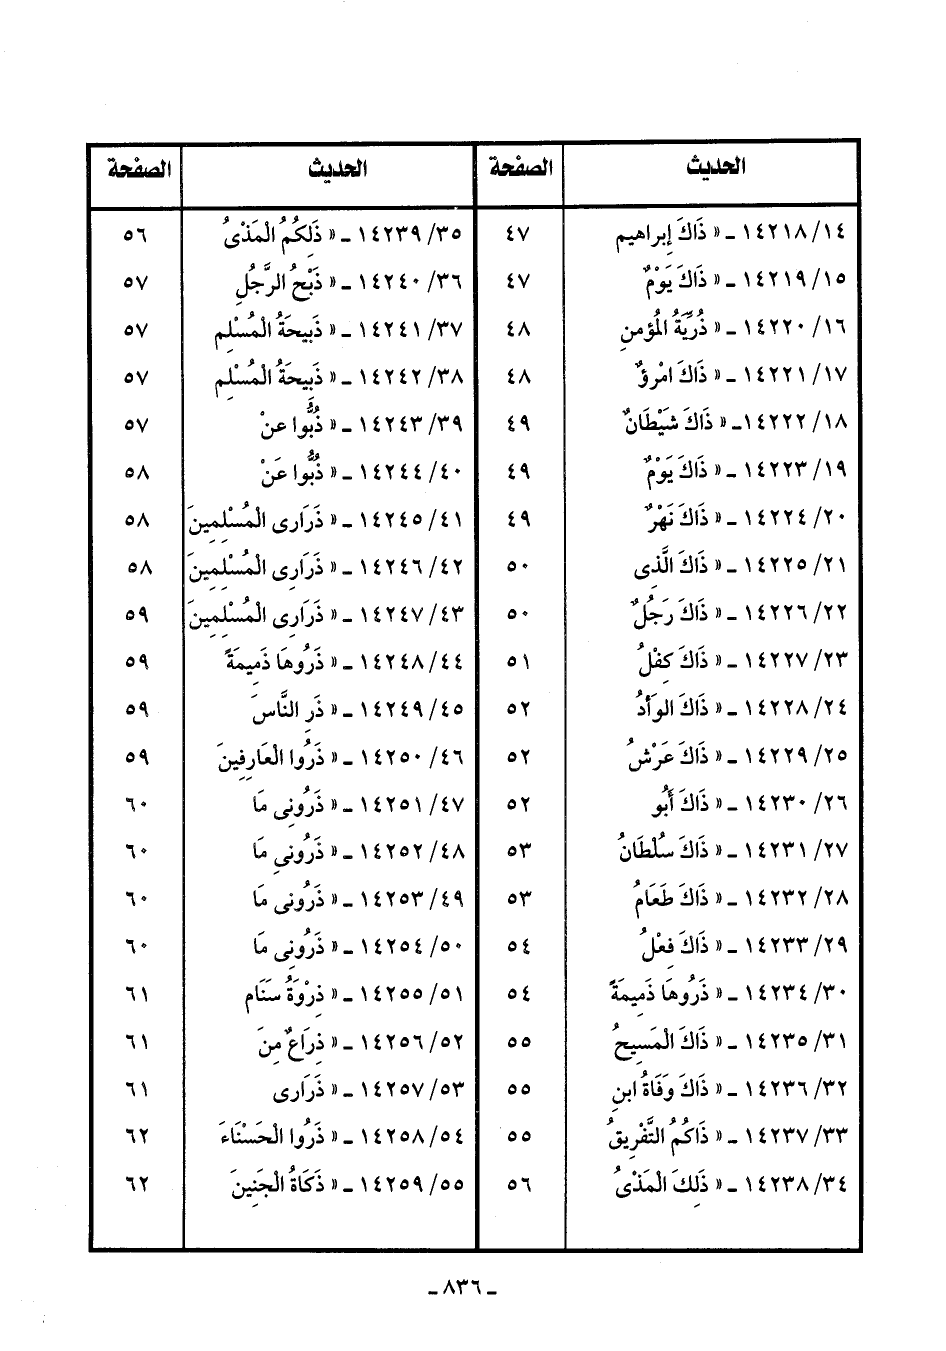 الحديث الصفحة الحديث الصفحة
١٤٢١٨/١٤ ـ « ذَاكَ إِبراهيم ٤٧
١٤٢١٩/١٥ ـ « ذَاكَ يَوْمٌ ٤٧
١٤٢٢٠/١٦ ـ « ذُرِّيَّةُ الْمُؤمنِ ٤٨
١٤٢٢١/١٧ ـ « ذَاكَ امْرؤٌ ٤٨
١٤٢٢٢/١٨ ـ « ذَاكَ شَيْطَانٌ ٤٩
١٤٢٢٣/١٩ ـ « ذَاكَ يَوْمٌ ٤٩
١٤٢٢٤/٢٠ ـ « ذَاكَ نَهْرٌ ٤٩
١٤٢٢٥/٢١ ـ « ذَاكَ الَّذِي ٥٠
١٤٢٢٦/٢٢ ـ « ذَاكَ رَجُلٌ ٥٠
١٤٢٢٧/٢٣ ـ « ذَاكَ كِفْلُ ٥١
١٤٢٢٨/٢٤ ـ « ذَاكَ الوَأدُ ٥٢
١٤٢٢٩/٢٥ ـ « ذَاكَ عَرْشُ ٥٢
١٤٢٣٠/٢٦ ـ « ذَاكَ أَبُو ٥٢
١٤٢٣١/٢٧ ـ « ذَاكَ سُلْطَانُ ٥٣
١٤٢٣٢/٢٨ ـ « ذَاكَ طَعَامُ ٥٣
١٤٢٣٣/٢٩ ـ « ذَاكَ فِعْلُ ٥٤
١٤٢٣٤/٣٠ ـ « ذَرُوهَا ذَمِيمَةً ٥٤
١٤٢٣٥/٣١ ـ « ذَاكَ الْمَسِيحُ ٥٥
١٤٢٣٦/٣٢ ـ « ذَاكَ وَفَاةُ ابنِ ٥٥
١٤٢٣٧/٣٣ ـ « ذَاكُمُ التَّفْرِيقُ ٥٥
١٤٢٣٨/٣٤ ـ « ذَلِكَ الْمَذْىُ ٥٦
١٤٢٣٩/٣٥ ـ « ذَلِكُمُ الْمَذْىُ ٥٦
١٤٢٤٠/٣٦ ـ « ذَبْحُ الرَّجُلِ ٥٧
١٤٢٤١/٣٧ ـ « ذَبِيحَةُ الْمُسْلِمِ ٥٧
١٤٢٤٢/٣٨ ـ « ذَبِيحَةُ الْمُسْلِمِ ٥٧
١٤٢٤٣/٣٩ ـ « ذُبُّوا عنْ ٥٧
١٤٢٤٤/٤٠ ـ « ذُبُّوا عَنْ ٥٨
١٤٢٤٥/٤١ ـ « ذَرَارِى الْمُسْلِمِينَ ٥٨
١٤٢٤٦/٤٢ ـ « ذَرَارِى الْمُسْلِمِينَ ٥٨
١٤٢٤٧/٤٣ ـ « ذَرَارِى الْمُسْلِمِينَ ٥٩
١٤٢٤٨/٤٤ ـ « ذَرُوهَا ذَمِيمَةً ٥٩
١٤٢٤٩/٤٥ ـ « ذَرِ النَّاسَ ٥٩
١٤٢٥٠/٤٦ ـ « ذَرُوا الْعَارِفِينَ ٥٩
١٤٢٥١/٤٧ ـ « ذَرُونِى مَا ٦٠
١٤٢٥٢/٤٨ ـ « ذَرُونِى مَا ٦٠
١٤٢٥٣/٤٩ ـ « ذَرُونِى مَا ٦٠
١٤٢٥٤/٥٠ ـ « ذَرُونِى مَا ٦٠
١٤٢٥٥/٥١ ـ « ذِرْوَةُ سَنَامِ ٦١
١٤٢٥٦/٥٢ ـ « ذِرَاعٌ مِنَ ٦١
١٤٢٥٧/٥٣ ـ « ذَرَارى ٦١
١٤٢٥٨/٥٤ ـ « ذَرُوا الْحَسْنَاءَ ٦٢
١٤٢٥٩/٥٥ ـ « ذَكَاةُ الْجَنِينَ ٦٢
ـ ٨٣٦ ـ